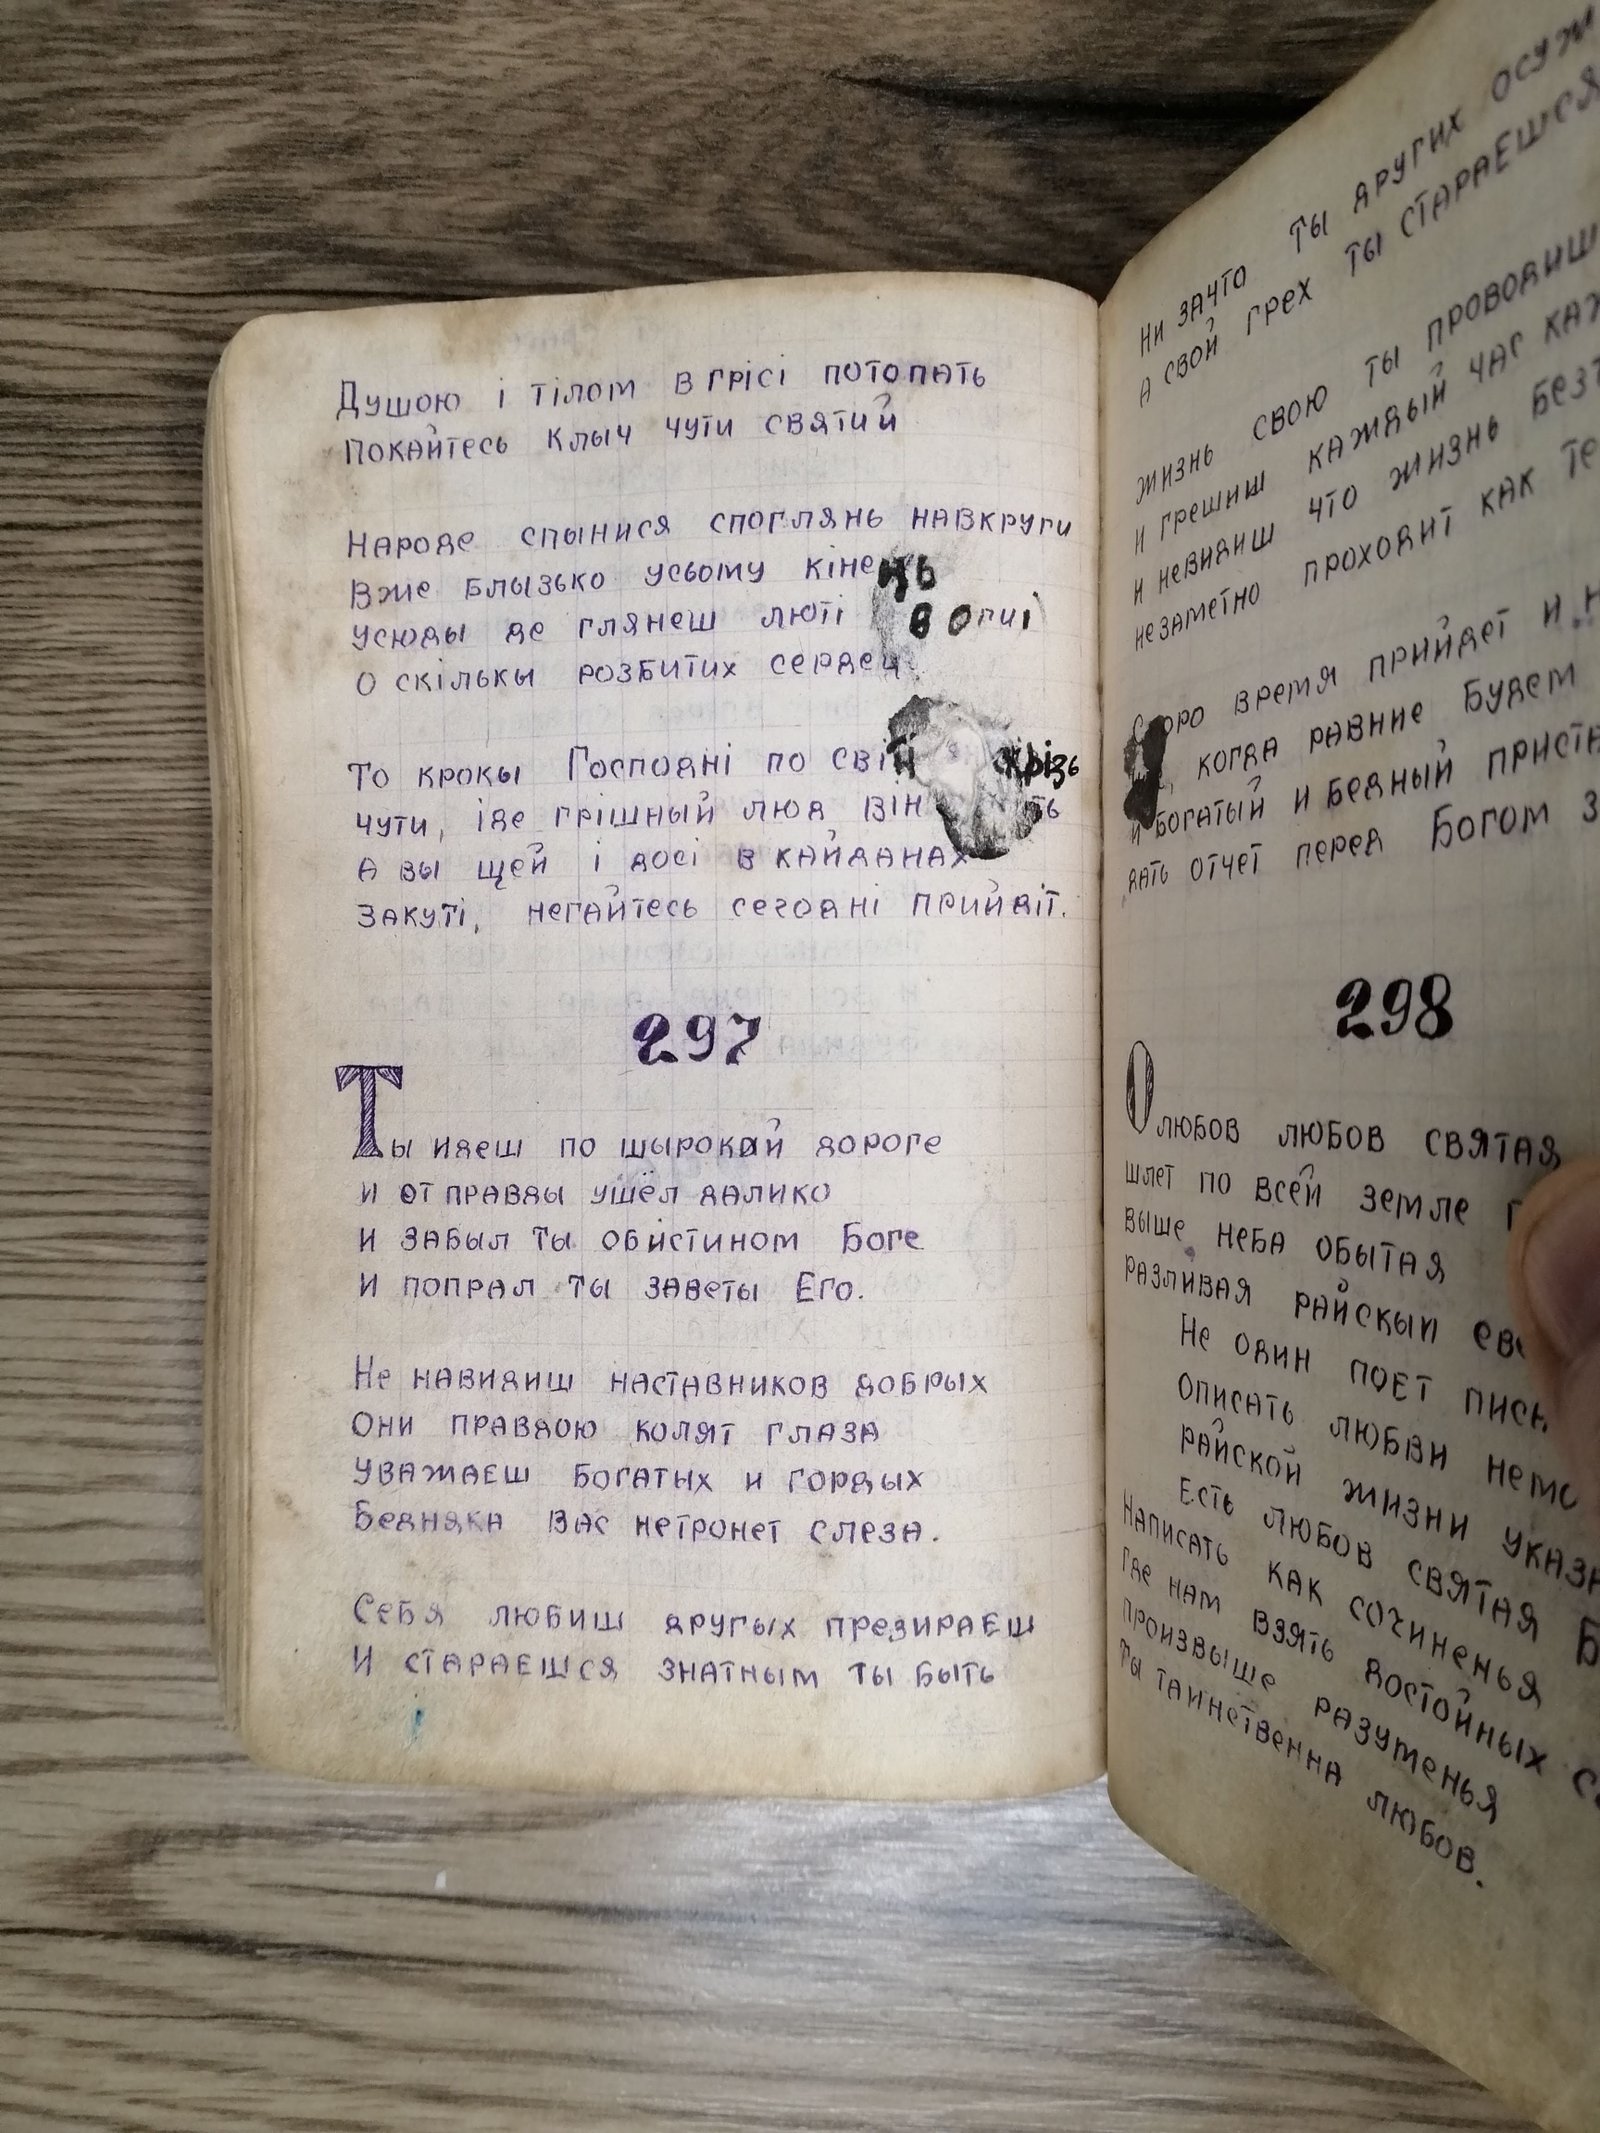 Душою і тілом в грісі потопать
Покайтесь клыч чути святий
Народе спынися споглянь навкруги
Вже блызько усьому кінець
Усюды де глянеш люті вогні
О скількы розбитих сердец.
То крокы Господні по світі скрізь
чути, іде грішный люд він
А вы щей і досі в кайданах
закуті, негайтесь сегодні прийдіт.
297
Ты идеш по шырокой дороге
и от правды ушёл далико
И забыл ты обистином Боге
И попрал ты заветы Его.
Не навидиш наставников добрых
Они правдою колят глаза
Уважаеш богатых и гордых
Бедняка вас нетронет слеза.
Себя любиш другых презираеш
И стараешся знатным ты быть
Ни зачто ты других осуж
А свой грех ты стараешся
жизнь свою ты проводиш
и грешиш каждый час каж
и невидиш что жизнь без
незаметно проходит как те
Скоро время прийдет и
когда равние будем
и богатый и бедный приста
дать отчет перед Богом з
298
О любов любов святая
шлет по всей земле
выше неба обытая
разливая райскый
Не один поет
Описать любви
райской жизни
Есть любов святая
Написать как сочиненья
где нам взять достойных
произвыше разуменья
Ты таинственна любов.